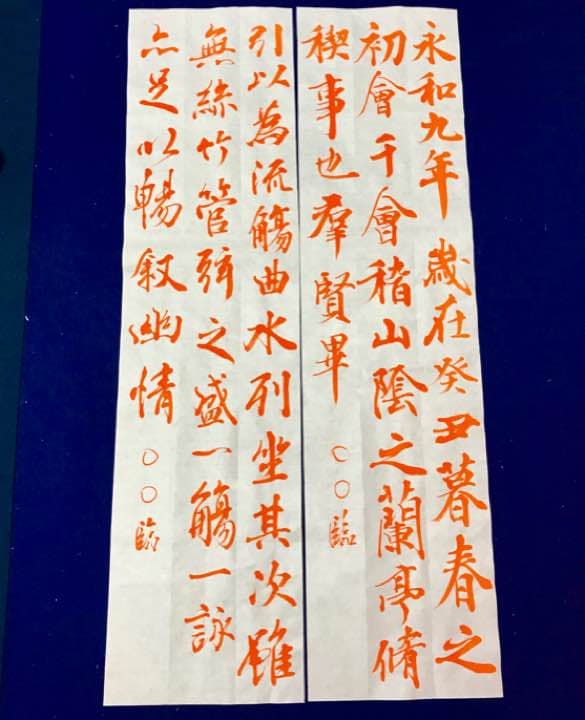 永和九年歲在癸丑暮春之
初會于會稽山陰之蘭亭脩
稧事也羣賢畢
〇〇臨
引以為流觴曲水列坐其次雖
無絲竹管弦之盛一觴一詠
亦足以暢叙幽情
〇〇臨